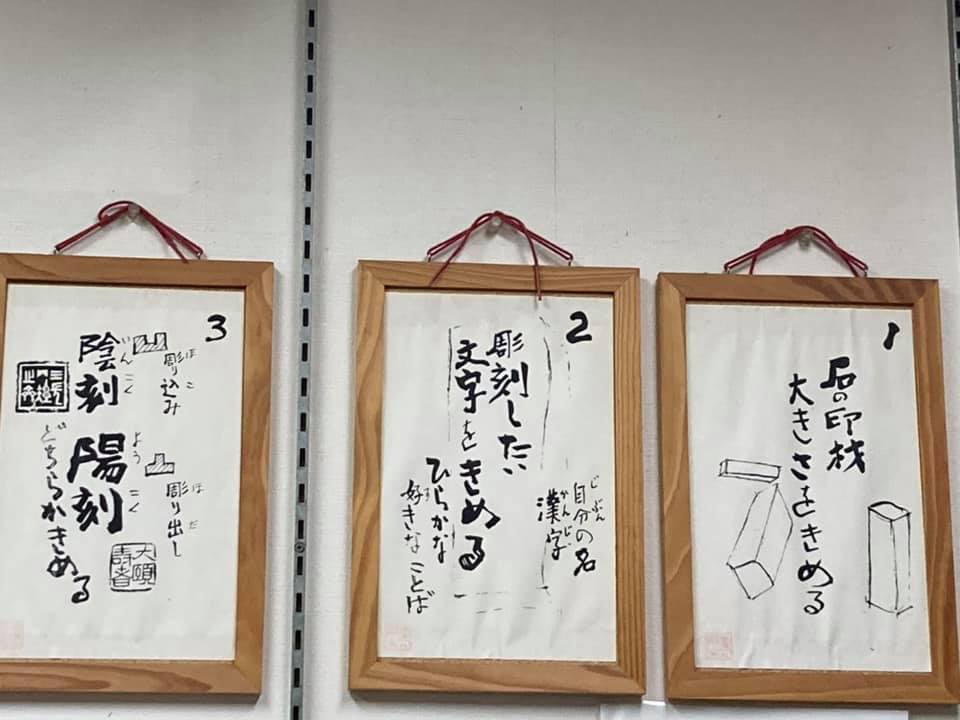 1
石の印材
大きさをきめる
2
彫刻したい
文字をきめる
じぶん
自分の名
かんじ
漢字
ひらかな
好きなことば
3
ほ こ
彫り込み
いん こく
陰刻
ほ だ
彫り出し
よう こく
陽刻
どちらかきめる